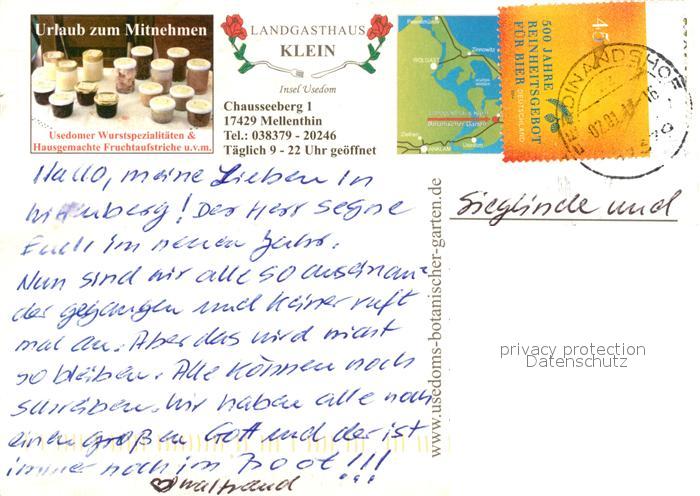 Urlaub zum Mitnehmen
Usedomer Wurstspezialitäten &
Hausgemachte Fruchtaufstriche u.v.m.
LANDGASTHAUS
KLEIN
Insel Usedom
Chausseeberg 1
17429 Mellenthin
Tel.: 038379 - 20246
Täglich 9 - 22 Uhr geöffnet
WOLGAST
Zinnowitz
Botanischer Garten
Usedom
ANKLAM
500 JAHRE
REINHEITSGEBOT
FÜR BIER
DEUTSCHLAND
45
FERDINANDSHOF
Hallo, meine Lieben in
Wittenberg! Der Herr segne
Euch im neuen Jahr.
Nun sind wir alle so auseinan-
der gegangen und keiner ruft
mal an. Aber das wird nicht
so bleiben. Alle können noch
schreiben. Wir haben alle noch
einen großen Gott und der ist
immer noch im Boot!!!
Waltraud
www.usedoms-botanischer-garten.de
Sieglinde und
privacy protection
Datenschutz